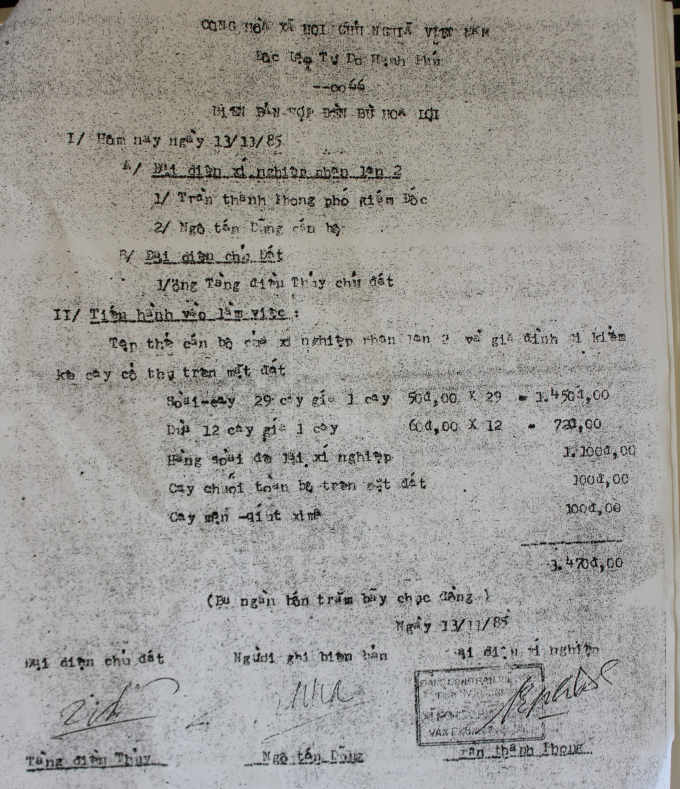 CỘNG HÒA XÃ HỘI CHỦ NGHĨA VIỆT NAM
Độc Lập Tự Do Hạnh Phú
--oo66
BIÊN BẢN HỢP ĐỀN BÙ HOA LỢI
I/ Hôm nay ngày 13/11/85
A/ Đại diện xí nghiệp phân lân 2
1/ Trần thành Phong phó giám Đốc
2/ Ngô tấn Dũng cán bộ
B/ Đại diện chủ Đất
1/Ông Tăng điều Thủy chủ đất
II/ Tiến hành vào làm việc :
Tập thể cán bộ của xí nghiệp phân lân 2 và gia đình đi kiểm
kê cây cổ thụ trên mặt đất
Soài-cây 29 cây giá 1 cây 50đ,00 X 29 = 1.450đ,00
Dừa 12 cây giá 1 cây 60đ,00 X 12 = 720,00
Hàng soài để lại xí nghiệp 1.100đ,00
Cây chuối toàn bộ trên mặt đất 100đ,00
Cây mận -quít 100đ,00
3.470đ,00
(Ba ngàn bốn trăm bảy chục đồng )
Ngày 13/11/85
Đại diện chủ đất Người ghi biên bản Đại diện xí nghiệp
Tăng điều Thủy Ngô tấn Dũng Trần thành Phong